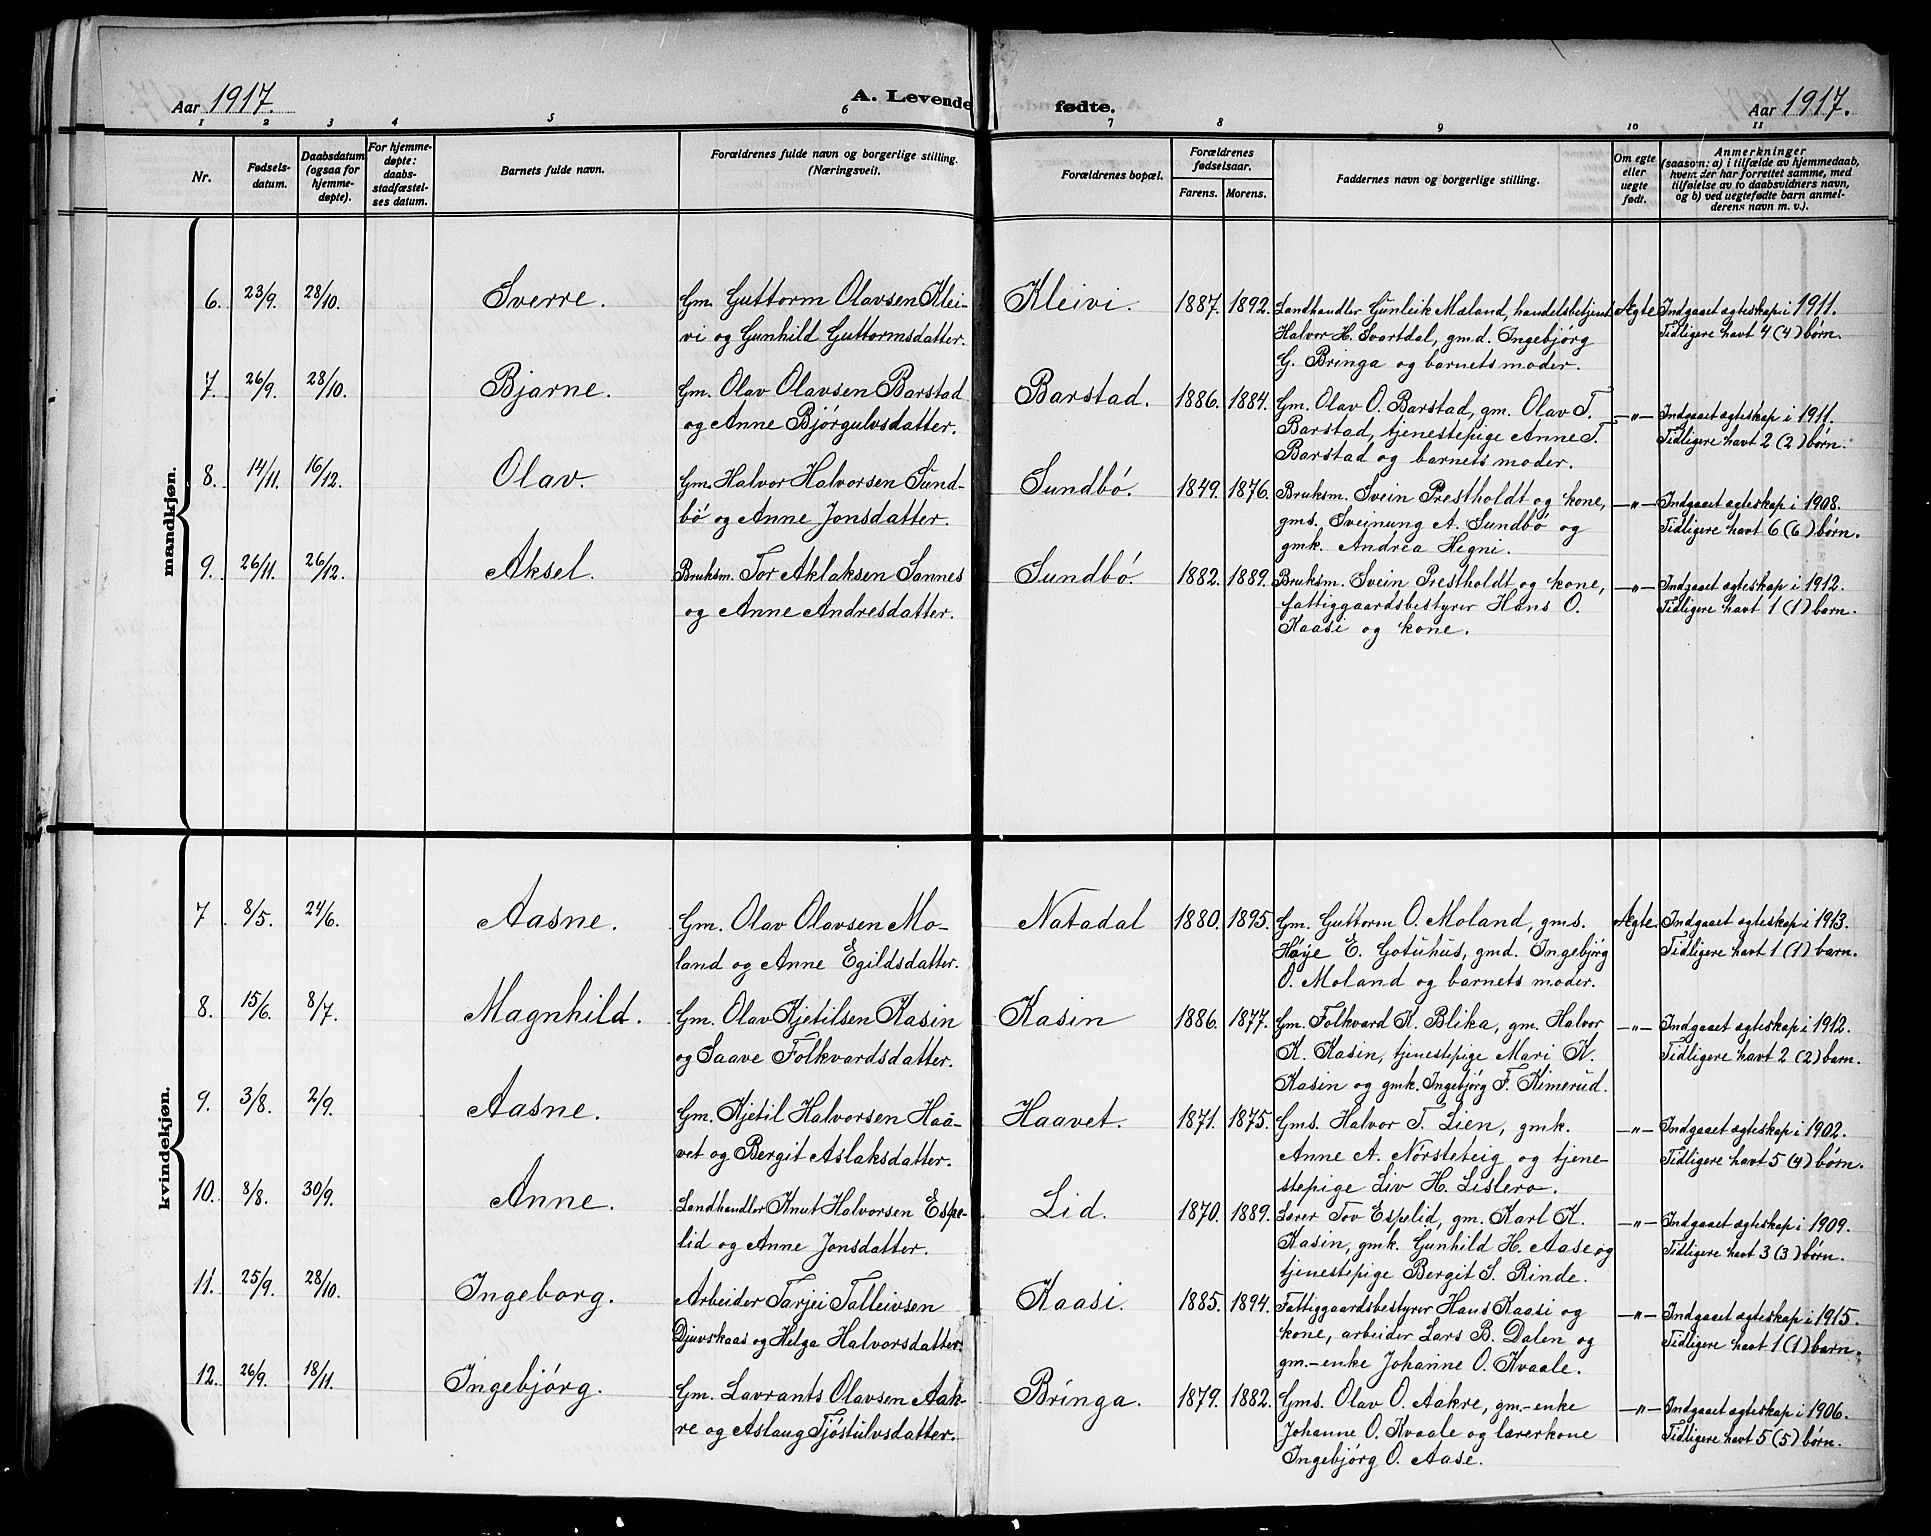 Aar 1917.
A. Levende fødte.
Aar 1917.
1 2 3 4 5 6 7 8 9 10 11
Nr.
Fødsels-
datum.
Daabsdatum
(ogsaa for
hjemme-
døpte).
For hjemme-
døpte:
daabs-
stadfæstel-
ses datum.
Barnets fulde navn.
Forældrenes fulde navn og borgerlige stilling.
(Næringsvei).
Forældrenes bopæl.
Forældrenes
fødselsaar.
Farens. Morens.
Faddernes navn og borgerlige stilling.
Om egte
eller
uegte
født.
Anmerkninger
(saasom: a) i tilfælde av hjemmedaab,
hvem der har forrettet samme, med
tilføielse av to daabsvidners navn,
og b) ved uegtefødte barn anmel-
derens navn m. v.).
mandkjøn.
6. 23/9. 28/10. Sverre. Gm. Guttorm Olavsen Klei- Kleivi. 1887. 1892. Landhandler Gunleik Mæland, handelsbetjent Ægte Indgaaet ægteskap i 1911.
vi og Gunhild Guttormsdatter. Halvor H. Svartdal, gmd. Ingebjørg Tidligere havt 4 (4) børn.
G. Bringa og barnets moder.
7. 26/9. 28/10. Bjarne. Gm. Olav Olavsen Barstad Barstad. 1886. 1884. Gm. Olav O. Barstad, gm. Olav T. —"— Indgaaet ægteskap i 1911.
og Anne Bjørgulvsdatter. Barstad, tjenestepige Anne T. Tidligere havt 2 (2) børn.
Barstad og barnets moder.
8. 14/11. 16/12. Olav. Gm. Halvor Halvorsen Sund- Sundbø. 1849. 1876. Bruksm. Svein Prestholdt og kone, —"— Indgaaet ægteskap i 1908.
bø og Anne Jonsdatter. gms. Sveinung A. Sundbø og Tidligere havt 6 (6) børn.
gmk. Andrea Hegni.
9. 26/11. 26/12. Aksel. Bruksm. Tor Aklaksen Sannes Sundbø 1882. 1889. Bruksm. Svein Prestholdt og kone, —"— Indgaaet ægteskap i 1912.
og Anne Andresdatter. fattiggaardsbestyrer Hans O. Tidligere havt 1 (1) barn.
Kaasi og kone.
kvindekjøn.
7 8/5. 24/6. Aasne. Gm. Olav Olavsen Mo- Natadal 1880. 1895. Gm. Guttorm O. Moland, gms. Ægte. Indgaaet ægteskap i 1913.
land og Anne Egildsdatter. Høye E. Gotuhus, gmd. Ingebjørg Tidligere havt 1 (1) barn.
O. Moland og barnets moder.
8. 15/6. 8/7. Magnhild. Gm. Olav Kjetilsen Kasin Kasin 1886. 1877. Gm. Folkvard K. Blika, gm. Halvor —"— Indgaaet ægteskap i 1912.
og Saave Folkvardsdatter. K. Kasin, tjenestepige Mari K. Tidligere havt 2 (2) barn.
Kasin og gmk. Ingebjørg F. Kimerud.
9. 3/8. 2/9. Aasne. Gm. Kjetil Halvorsen Haa- Haavet. 1871. 1875. Gms. Halvor T. Lien, gmk. —"— Indgaaet ægteskap i 1902.
vet og Bergit Aslaksdatter. Anne A. Norsteteig og tjene- Tidligere havt 5 (4) børn.
stepige Liv H. Lislero.
10. 8/8. 30/9. Anne. Landhandler Knut Halvorsen Espe- Lid. 1870. 1889. Lærer Tov Espelid, gm. Karl K. —"— Indgaaet ægteskap i 1909.
lid og Anne Jonsdatter. Kasin, gmk. Gunhild H. Aase og Tidligere havt 3 (3) børn.
tjenestepige Bergit S. Rinde.
11. 25/9. 28/10. Ingeborg. Arbeider Tarjei Talleivsen Kaasi. 1885. 1894. Fattiggaardsbestyrer Hans Kaasi og —"— Indgaaet ægteskap i 1915.
Djuvskaas og Helga Halvorsdatter. kone, arbeider Lars B. Dalen og Tidligere havt 1 (1) barn.
gm.-enke Johanne O. Kvaale.
12. 26/9. 18/11. Ingebjørg. Gm. Lavrants Olavsen Aak- Bringa. 1879. 1882. Gms. Olav O. Aakre, gm.-enke —"— Indgaaet ægteskap i 1906.
re og Aslaug Tjøstulvsdatter. Johanne O. Kvaale og lærerkone Tidligere havt 5 (5) børn.
Ingebjørg O. Aase.